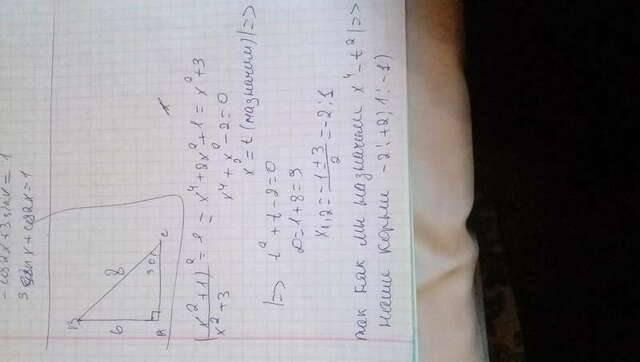 -cos2x+3sinx=1
3sinx+cos2x=1
B
6
8
30
A
C
(x²+1)²/(x²+3) = 1 = x⁴+2x²+1 = x²+3
x⁴+x²-2=0
x²=t (назначим) |=>
|=> t²+t-2=0
D=1+8=9
x1,2=(-1±3)/2=-2;1
так как мы назначили x⁴-t² |=>
наши корни -2;+2;1;-1)